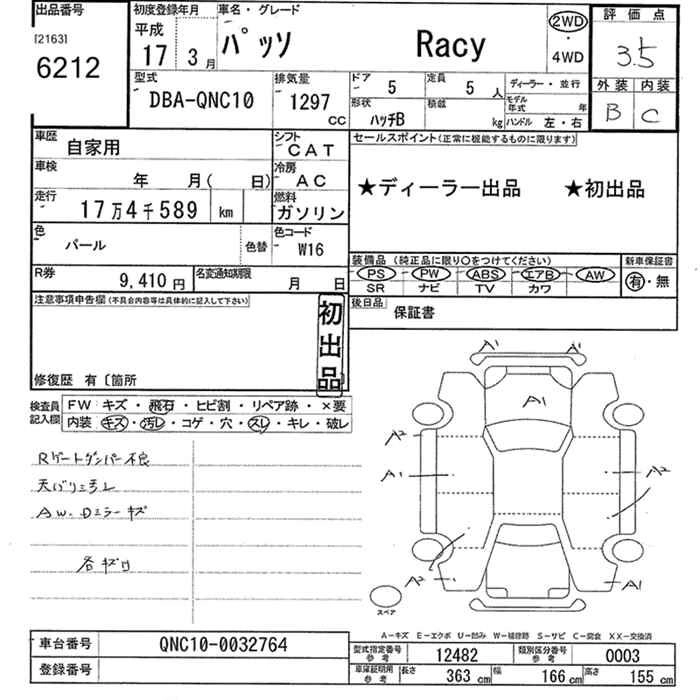 出品番号
[2163]
6212
初度登録年月
平成
17 3月
車名・グレード
パッソ Racy
2WD
・
4WD
評価点
3.5
外装 内装
B C
型式
DBA-QNC10
排気量
1297
CC
ドア 5
定員 5 人
ディーラー・並行
形状 ハッチB
積載 kg
モデル年式 年
ハンドル 左・右
車歴 自家用
シフト CAT
セールスポイント(正常に機能するものに限ります)
車検 年 月( 日)
冷房 AC
★ディーラー出品 ★初出品
走行 17万4千589 km
燃料 ガソリン
色 パール 色替
色コード W16
装備品 (純正品に限り○をつけてください)
新車保証書
PS PW ABS エアB AW
有・無
SR ナビ TV カワ
R券 9,410円
名変通知期限 月 日
後日品 保証書
注意事項申告欄(不具合内容等は具体的に記入して下さい)
初出品
修復歴 有〔箇所
検査員記入欄
FW キズ・飛石・ヒビ割・リペア跡・×要
内装 キズ・汚レ・コゲ・穴・スレ・キレ・破レ
Rゲートダンパー不良
天バリヨゴレ
AW.Dミラーキズ
各キズ凹
A1 A1
A1
A2
A1
A2
A2
A1
スペア
A-キズ E-エクボ U-凹み W-補修跡 S-サビ C-腐食 XX-交換済
車台番号 QNC10-0032764
登録番号
型式指定番号参考 12482
類別区分番号参考 0003
車庫証明用参考 長さ 363 cm 幅 166 cm 高さ 155 cm